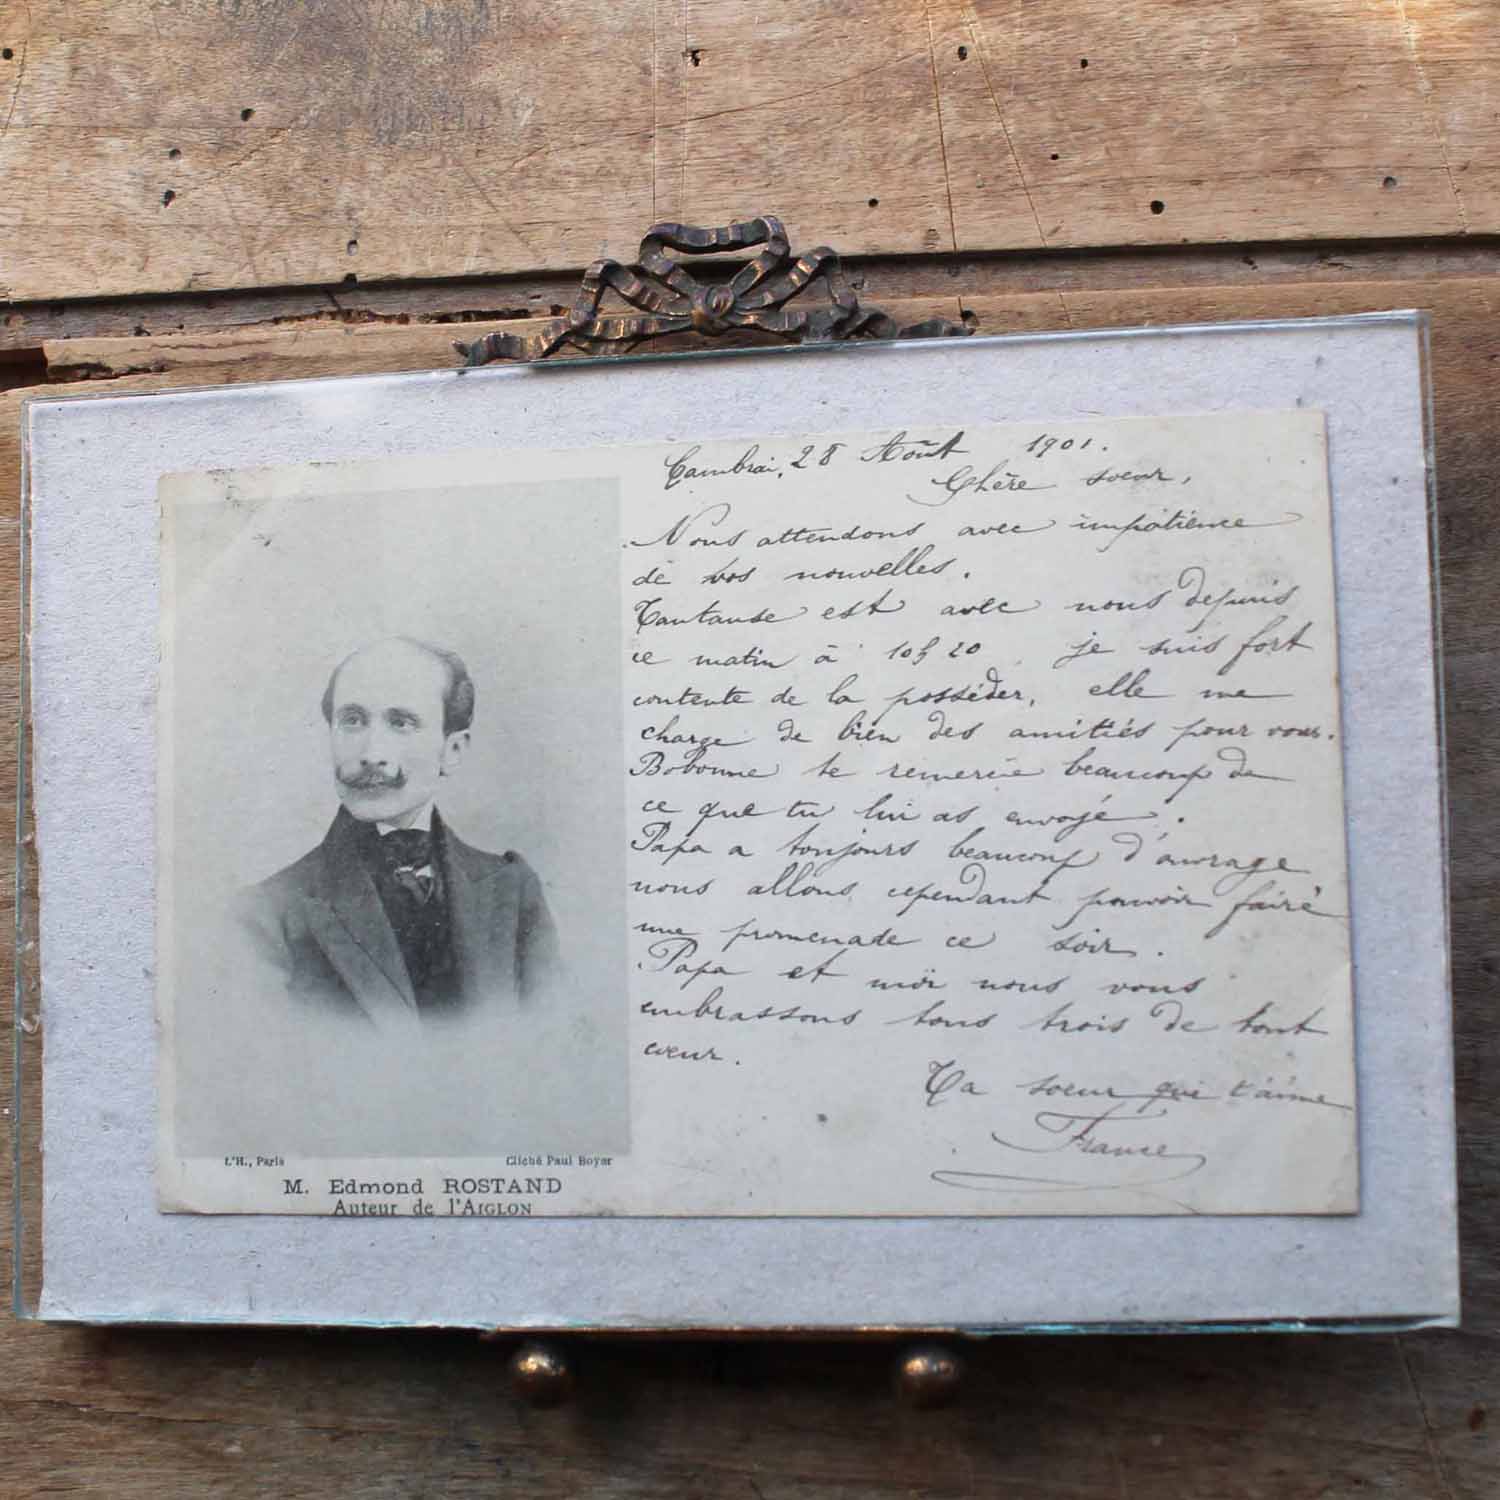 Cambrai, 28 Août 1901.
Chère soeur,
Nous attendons avec impatience
de vos nouvelles.
Tantante est avec nous depuis
ce matin à 10h 20 je suis fort
contente de la posséder, elle me
charge de bien des amitiés pour vous.
Bobonne te remercie beaucoup de
ce que tu lui as envoyé.
Papa a toujours beaucoup d'ouvrage
nous allons cependant pouvoir faire
une promenade ce soir.
Papa et moi nous vous
embrassons tous trois de tout
cœur.
Ta soeur qui t'aime
France
L'H., Paris
Cliché Paul Boyer
M. Edmond ROSTAND
Auteur de l'AIGLON